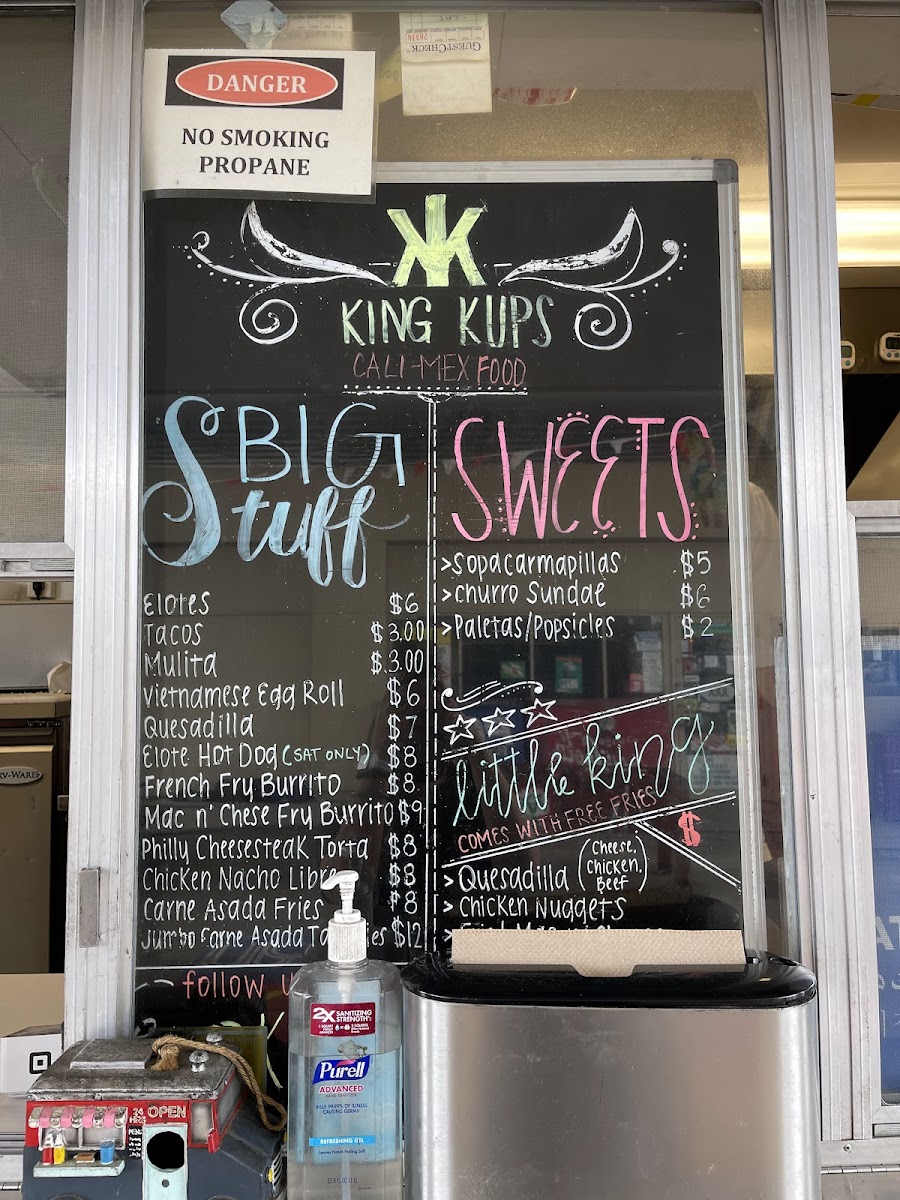 GUESTCHECK™
DANGER
NO SMOKING
PROPANE
KING KUPS
CALI-MEX FOOD
BIG
Stuff
Elotes $6
Tacos $3.00
Mulita $.3.00
Vietnamese Egg Roll $6
Quesadilla $7
Elote Hot Dog (SAT ONLY) $8
French Fry Burrito $8
Mac n' Chese Fry Burrito $9
Philly Cheesesteak Torta $8
Chicken Nacho Libre $8
Carne Asada Fries $8
Jumbo Carne Asada $12
follow
SWEETS
>Sopacarmapillas $5
>churro Sundae $6
>Paletas/Popsicles $2
little king
COMES WITH FREE FRIES
$
> Quesadilla (Cheese, Chicken, Beef)
> Chicken Nuggets
2X SANITIZING
STRENGTH
Purell
ADVANCED
HAND SANITIZER
KILLS 99.99% OF ILLNESS
CAUSING GERMS
REFRESHING GEL
24
HRS
OPEN
MENU